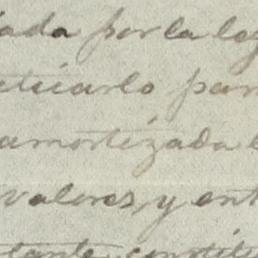 ada por la ley
eticarlo par
amortizada e
valores, y ent
tante constitu